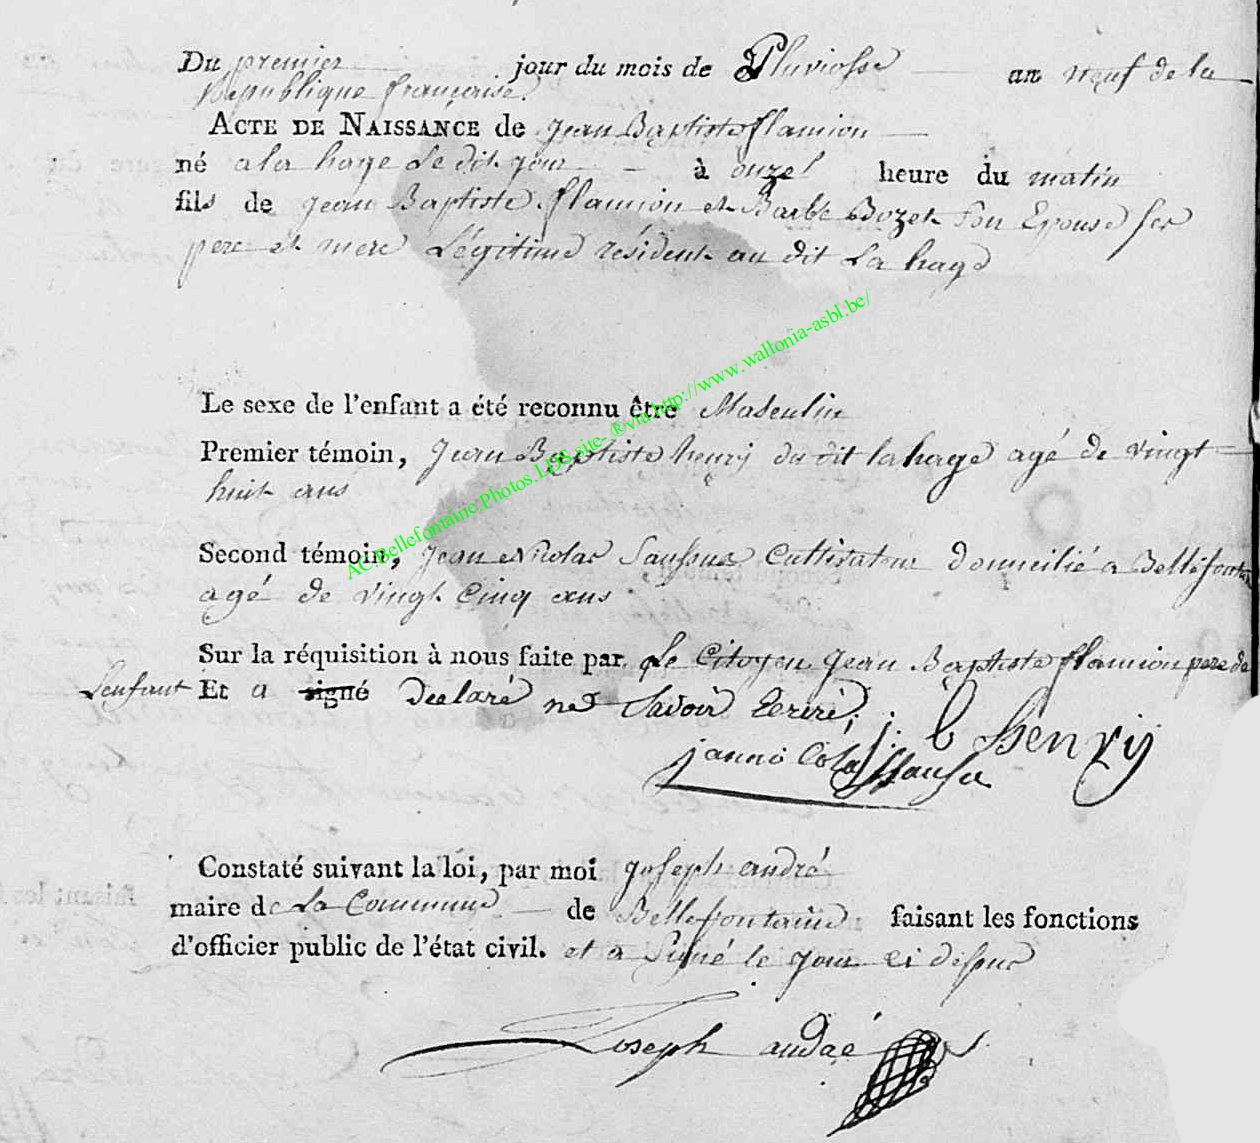 Du premier jour du mois de Pluviosse an neuf de la
République française.
ACTE DE NAISSANCE de jean Baptiste flamion
né a la hage Le dit jour à onze heure du matin
fils de jean Baptiste flamion et Barbe Bozet son Epouse ses
pere et mere Légitime résident au dit La hage
Le sexe de l'enfant a été reconnu être Masculin
Premier témoin, Jean Baptiste henrij du dit la hage agé de vingt
huit ans
Second témoin, jean Nicolas Saussus Cultivateur domicilié a Bellefontaine
agé de vingt Cinq ans
Sur la réquisition à nous faite par Le Citoyen jean Baptiste flamion pere de
Lenfant Et a signé Declaré ne Savoir Ecrire;
j: b henrij
janni Cola Sausu
Constaté suivant la loi, par moi joseph andré
maire de La Commune de Bellefontaine faisant les fonctions
d'officier public de l'état civil. et a Signé le jour ci dessus
Joseph andré
AC.Bellefontaine.Photos.LDS.site-®via.http://www.wallonia-asbl.be/